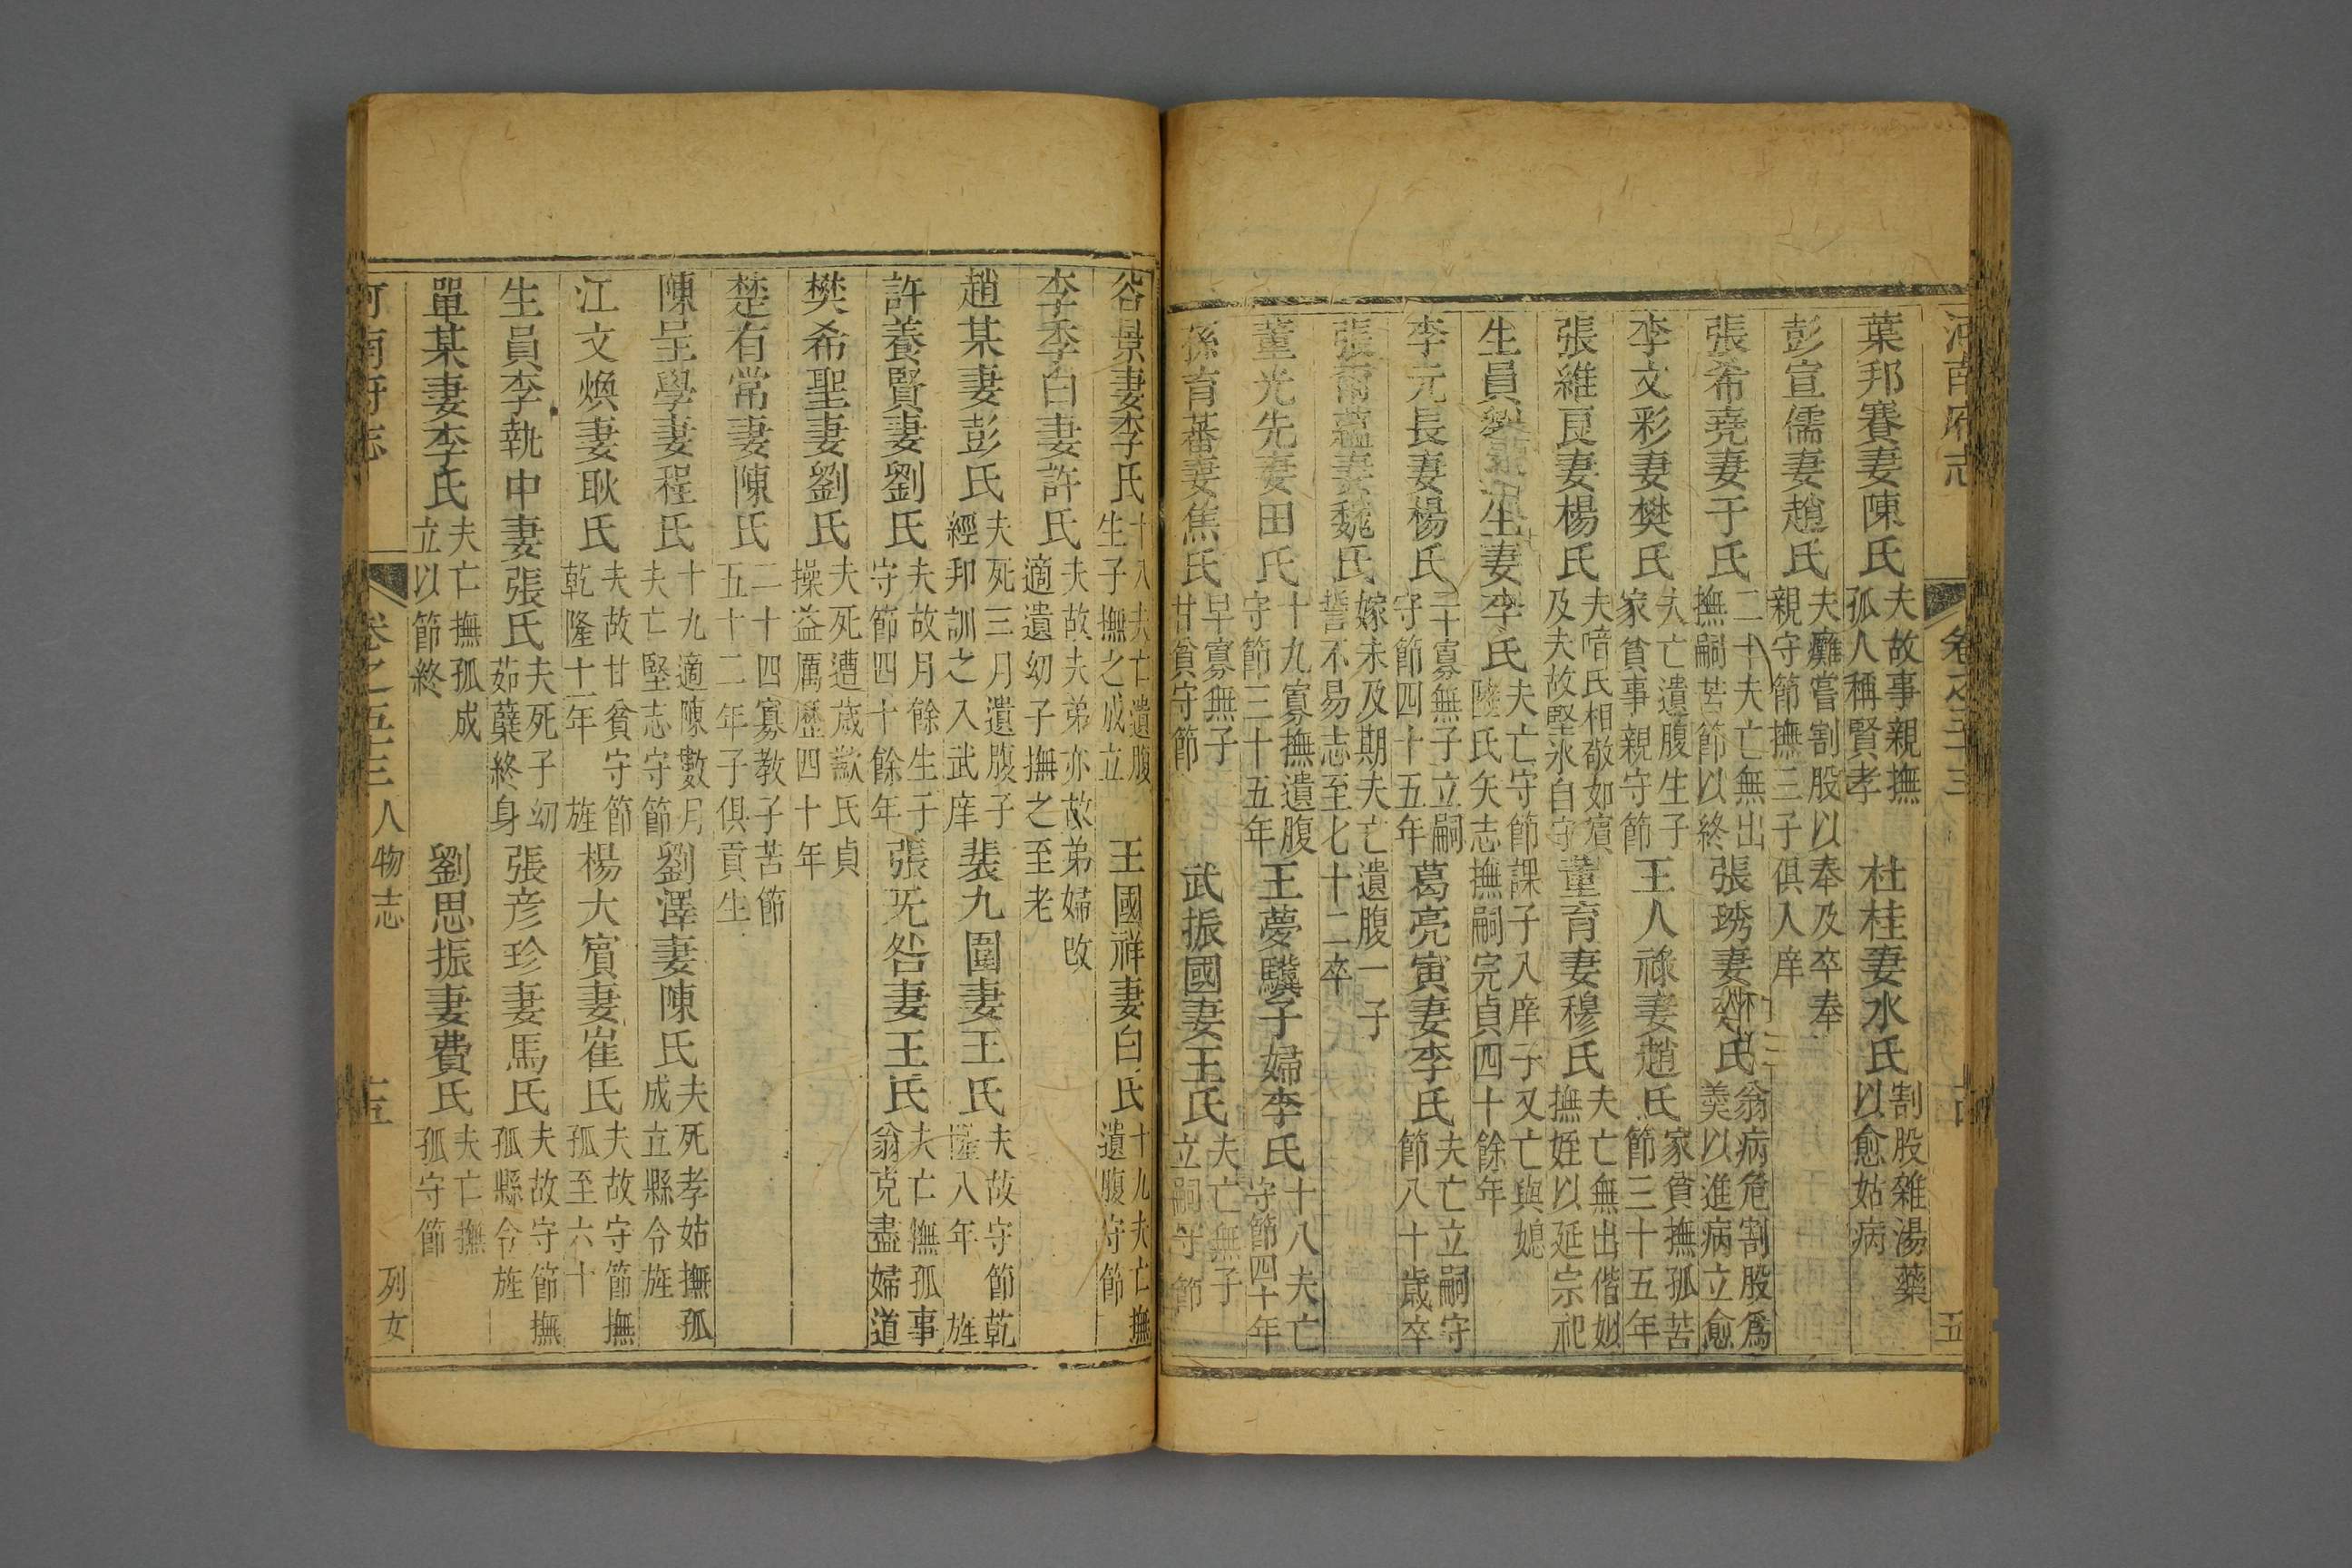 河南府志 卷之五十三
葉邦賽妻陳氏 夫故事親撫孤人稱賢孝 杜桂妻水氏 割股雜湯藥以愈姑病
彭宣儒妻趙氏 夫癱嘗割股以奉及卒奉親守節撫三子俱入庠
張希堯妻于氏 二十夫亡無出撫嗣苦節以終 張琇妻 氏 翁病危割股爲羮以進病立愈
李文彩妻樊氏 夫亡遺腹生子家貧事親守節 王人祿妻趙氏 家貧撫孤苦節三十五年
張維垣妻楊氏 夫喑氏相敬如賓及夫故堅氷自守 董育妻穆氏 夫亡無出偕姒撫姪以延宗祀
生員 生妻李氏 夫亡守節課子入庠子又亡與媳陸氏矢志撫嗣完貞四十餘年
李元長妻楊氏 二十寡無子立嗣守節四十五年 葛亮寅妻李氏 夫亡立嗣守節八十歲卒
張爾蘊妻魏氏 嫁未及期夫亡遺腹一子誓不易志至七十二卒
董光先妻田氏 十九寡撫遺腹守節三十五年 王夢驥子婦李氏 十八夫亡守節四十年
孫育蕃妻焦氏 早寡無子甘貧守節 武振國妻王氏 夫亡無子立嗣守節
昝景妻李氏 十八夫亡遺腹生子撫之成立 王國祥妻白氏 十九夫亡撫遺腹守節
李季白妻許氏 夫故夫弟亦故弟婦改適遺幼子撫之至老
趙某妻彭氏 夫死三月遺腹子經邦訓之入武庠 裴九圍妻王氏 夫故守節乾隆八年旌
許養賢妻劉氏 夫故月餘生子守節四十餘年 張旡咎妻王氏 夫亡撫孤事翁克盡婦道
樊希聖妻劉氏 夫死遭歲歉氏貞操益厲歷四十年
楚有常妻陳氏 二十四寡教子苦節五十二年子俱貢生
陳呈學妻程氏 十九適陳數月夫亡堅志守節 劉澤妻陳氏 夫死孝姑撫孤成立縣令旌
江文煥妻耿氏 夫故甘貧守節乾隆十二年旌 楊大賓妻崔氏 夫故守節撫孤至六十
生員李執中妻張氏 夫死子幼茹蘗終身 張彥珍妻馬氏 夫故守節撫孤縣令旌
單某妻李氏 夫亡撫孤成立以節終 劉思振妻費氏 夫亡撫孤守節
河南府志 卷之五十三 人物志 列女